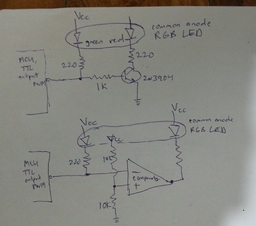 Vcc
common anode
RGB LED
green red
220
220
MCU,
TTL
output
PWM
1K
2N3904
Vcc
Vcc
common anode
RGB LED
MCU
TTL
output
PWM
220
10K
+
10K